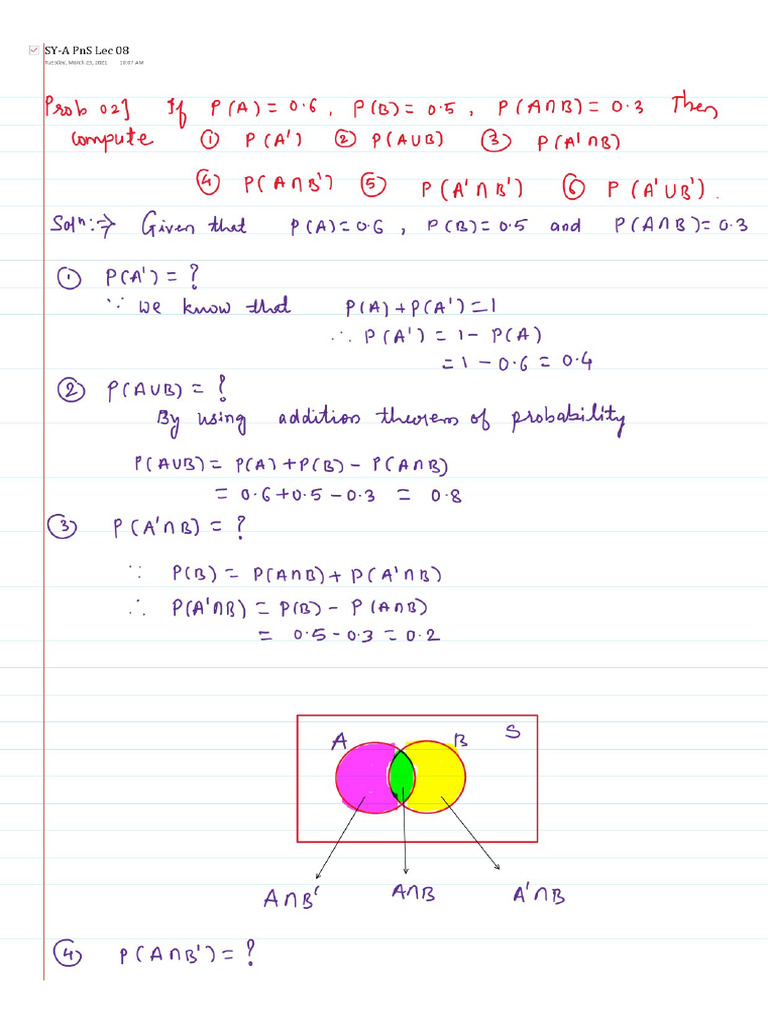 SY-A PnS Lec 08
Tuesday, March 23, 2021 10:07 AM
Prob 02] If P(A) = 0.6, P(B) = 0.5, P(A∩B) = 0.3 Then
compute ① P(A') ② P(A∪B) ③ P(A'∩B)
④ P(A∩B') ⑤ P(A'∩B') ⑥ P(A'∪B').
Solⁿ:⇒ Given that P(A)=0.6, P(B)=0.5 and P(A∩B)=0.3
① P(A') = ?
∵ we know that P(A)+P(A')=1
∴ P(A') = 1 - P(A)
= 1 - 0.6 = 0.4
② P(A∪B) = ?
By using addition theorem of probability
P(A∪B) = P(A)+P(B) - P(A∩B)
= 0.6+0.5-0.3 = 0.8
③ P(A'∩B) = ?
∵ P(B) = P(A∩B) + P(A'∩B)
∴ P(A'∩B) = P(B) - P(A∩B)
= 0.5-0.3 = 0.2
A B S
A∩B' A∩B A'∩B
④ P(A∩B') = ?